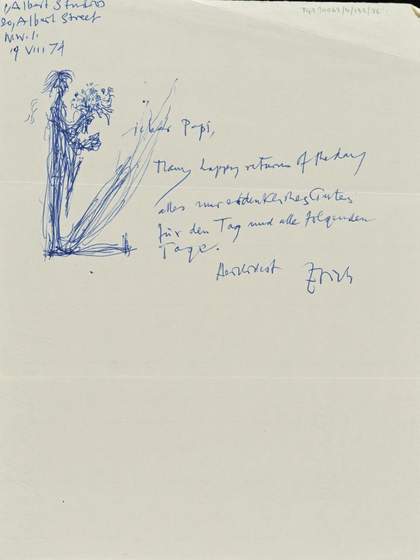 1, Albert Studios
80, Albert Street
N.W.1.
19 VIII 74
Lieber Papi,
Many happy returns of the day
alles nur erdenkliches Gutes
für den Tag und alle folgenden
Tage.
Herzlichst Erich